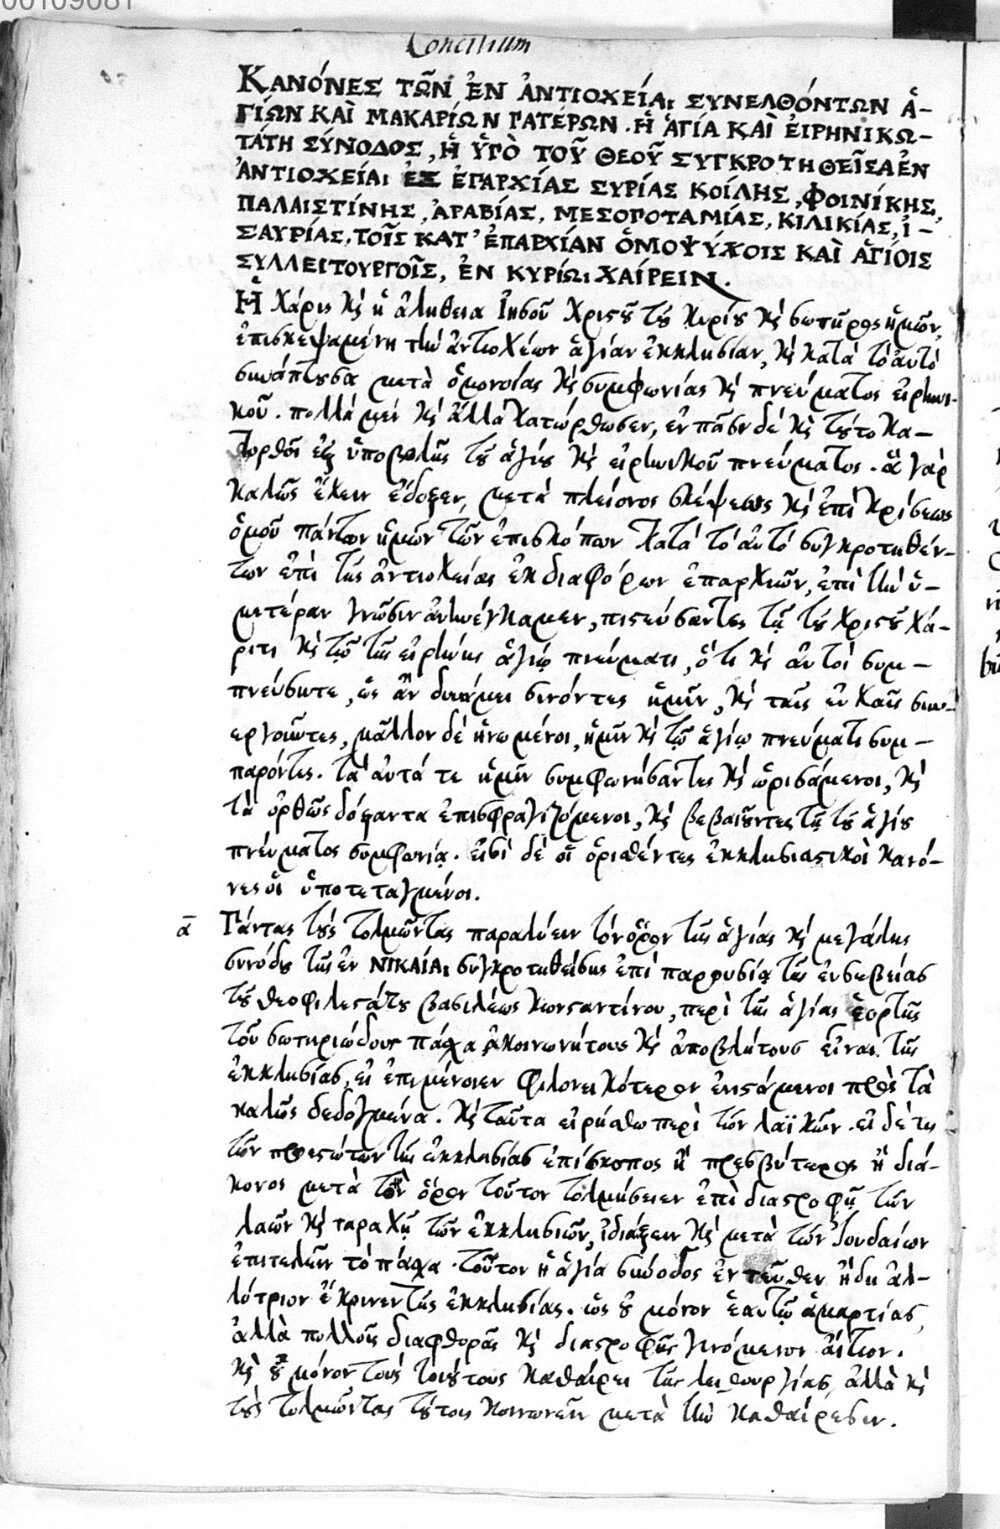 00109081
Concilium
ΚΑΝΌΝΕΣ ΤΩ͂Ν ἘΝ ἈΝΤΙΟΧΕΊΑι ΣΥΝΕΛΘΌΝΤΩΝ Ἁ-
ΓΊΩΝ ΚΑῚ ΜΑΚΑΡΊΩΝ ΠΑΤΈΡΩΝ. Ἡ ἉΓΊΑ ΚΑῚ ΕἸΡΗΝΙΚΩ-
ΤΆΤΗ ΣΎΝΟΔΟΣ, Ἡ ὙΠῸ ΤΟΥ͂ ΘΕΟΥ͂ ΣΥΓΚΡΟΤΗΘΕῖΣΑ ἘΝ
ἈΝΤΙΟΧΕΊΑι ἘΞ ἘΠΑΡΧΊΑΣ ΣΥΡΊΑΣ ΚΟΊΛΗΣ, ΦΟΙΝΊΚΗΣ,
ΠΑΛΑΙΣΤΊΝΗΣ, ἈΡΑΒΊΑΣ, ΜΕΣΟΠΟΤΑΜΊΑΣ, ΚΙΛΙΚΊΑΣ, Ἰ-
ΣΑΥΡΊΑΣ, ΤΟΙ͂Σ ΚΑΤ' ἘΠΑΡΧΊΑΝ ὉΜΟΨΎΧΟΙΣ ΚΑῚ ἉΓΊΟΙΣ
ΣΥΛΛΕΙΤΟΥΡΓΟΙ͂Σ, ἘΝ ΚΥΡΊΩι ΧΑΊΡΕΙΝ.
Ἡ χάρις κὶ ἡ ἀλήθεια Ἰησοῦ Χριστοῦ τοῦ κυρίου κὶ σωτῆρος ἡμῶν,
ἐπισκεψαμένη τὴν ἀντιοχέων ἁγίαν ἐκκλησίαν, κὶ κατὰ τὸ αὐτὸ
συνάπτουσα μετὰ ὁμονοίας κὶ συμφωνίας κὶ πνεύματος εἰρηνι-
κοῦ. πολλὰ μὲν κὶ ἄλλα κατώρθωσεν, ἐν πᾶσιν δὲ κὶ τοῦτο κα-
τορθοῖ ἐξ ὑποβολῆς τοῦ ἁγίου κὶ εἰρηνικοῦ πνεύματος. ἃ γὰρ
καλῶς ἔχειν ἔδοξεν, μετὰ πλείονος σκέψεως κὶ ἐπικρίσεως
ὁμοῦ πάντων ἡμῶν τῶν ἐπισκόπων κατὰ τὸ αὐτὸ συγκροτηθέν-
των ἐπὶ τῆς ἀντιοχείας ἐκ διαφόρων ἐπαρχιῶν, ἐπὶ τὴν ὑ-
μετέραν γνῶσιν ἀνηνέγκαμεν, πιστεύσαντες τῇ τοῦ Χριστοῦ χά-
ριτι κὶ τῷ τῆς εἰρήνης ἁγίῳ πνεύματι, ὅτι κὶ αὐτοὶ συμ-
πνεύσητε, ὡς ἂν δυνάμει συνόντες ἡμῖν, κὶ ταῖς εὐχαῖς συν-
εργοῦντες, μᾶλλον δὲ ἡνωμένοι, ἡμῖν κὶ τῷ ἁγίῳ πνεύματι συμ-
παρόντες. τὰ αὐτά τε ἡμῖν συμφωνήσαντες κὶ ὁρισάμενοι, κὶ
τὰ ὀρθῶς δόξαντα ἐπισφραγιζόμενοι, κὶ βεβαιοῦντες τῇ τοῦ ἁγίου
πνεύματος συμφωνίᾳ. εἰσὶ δὲ οἱ ὁρισθέντες ἐκκλησιαστικοὶ κανό-
νες οἱ ὑποτεταγμένοι.
α Πάντας τοὺς τολμῶντας παραλύειν τὸν ὅρον τῆς ἁγίας κὶ μεγάλης
συνόδου τῆς ἐν ΝΙΚΑΊΑι συγκροτηθείσης ἐπὶ παρουσίᾳ τῆς εὐσεβείας
τοῦ θεοφιλεστάτου βασιλέως Κωνσταντίνου, περὶ τῆς ἁγίας ἑορτῆς
τοῦ σωτηριώδους πάσχα ἀκοινωνήτους κὶ ἀποβλήτους εἶναι τῆς
ἐκκλησίας, εἰ ἐπιμένοιεν φιλονεικότερον ἐνιστάμενοι πρὸς τὰ
καλῶς δεδογμένα. κὶ ταῦτα εἰρήσθω περὶ τῶν λαϊκῶν. εἰ δέ τις
τῶν προεστώτων τῆς ἐκκλησίας ἐπίσκοπος ἢ πρεσβύτερος ἢ διά-
κονος μετὰ τὸν ὅρον τοῦτον τολμήσειεν ἐπὶ διαστροφῇ τῶν
λαῶν κὶ ταραχῇ τῶν ἐκκλησιῶν, ἰδιάζειν κὶ μετὰ τῶν Ἰουδαίων
ἐπιτελεῖν τὸ πάσχα. τοῦτον ἡ ἁγία σύνοδος ἐντεῦθεν ἤδη ἀλ-
λότριον ἔκρινεν τῆς ἐκκλησίας. ὡς οὐ μόνον ἑαυτῷ ἁμαρτίας,
ἀλλὰ πολλοῖς διαφθορᾶς κὶ διαστροφῆς γινόμενον αἴτιον.
κὶ οὐ μόνον τοὺς τοιούτους καθαίρει τῆς λειτουργίας, ἀλλὰ κὶ
τοὺς τολμῶντας τούτοις κοινωνεῖν μετὰ τὴν καθαίρεσιν.